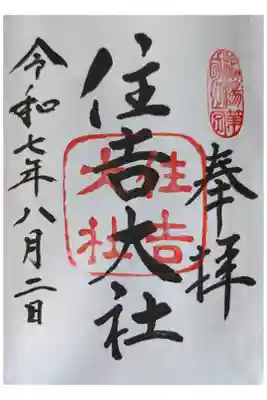 奉拝
住吉大社
住吉大社
令和七年八月二日